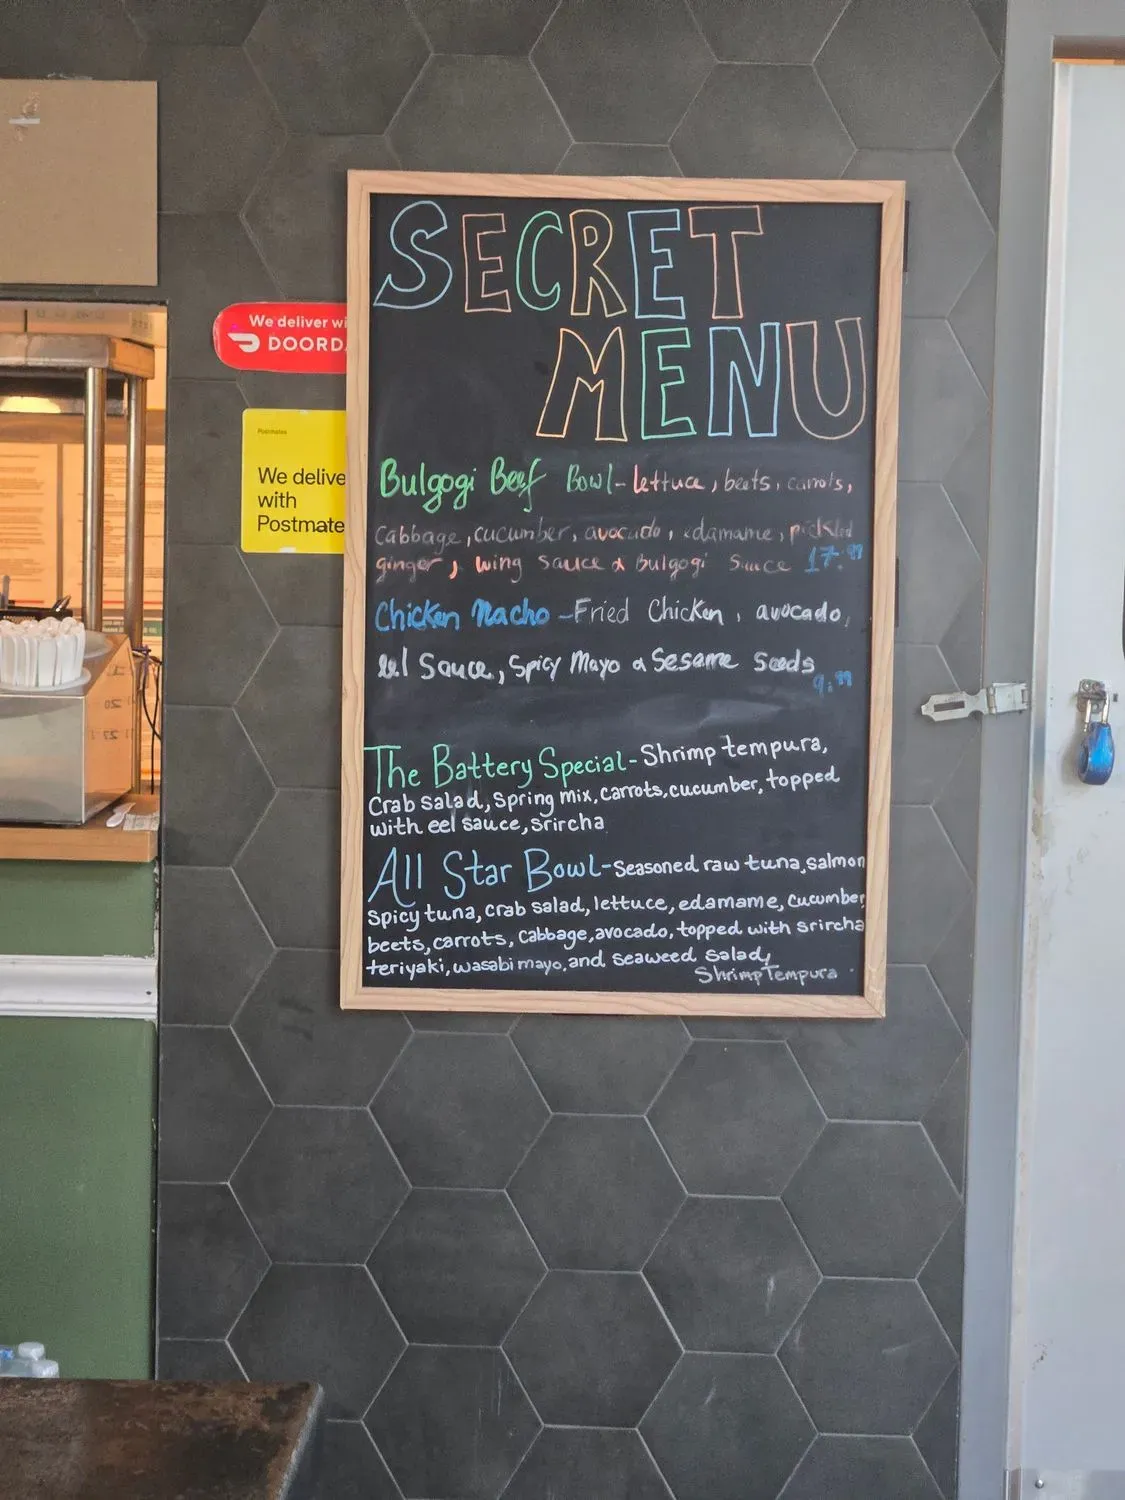 SECRET
MENU
Bulgogi Beef Bowl - lettuce, beets, carrots,
cabbage, cucumber, avocado, edamame, pickled
ginger, wing sauce & Bulgogi Sauce 17.99
Chicken Nacho - Fried Chicken, avocado,
eel Sauce, Spicy Mayo & Sesame Seeds
9.99
The Battery Special - Shrimp tempura,
Crab salad, Spring mix, carrots, cucumber, topped
with eel sauce, srircha
All Star Bowl - Seasoned raw tuna, salmon
Spicy tuna, crab salad, lettuce, edamame, cucumber,
beets, carrots, cabbage, avocado, topped with srircha
teriyaki, wasabi mayo, and seaweed salad,
Shrimp Tempura
We deliver wi
DOORDA
Postmates
We delive
with
Postmate